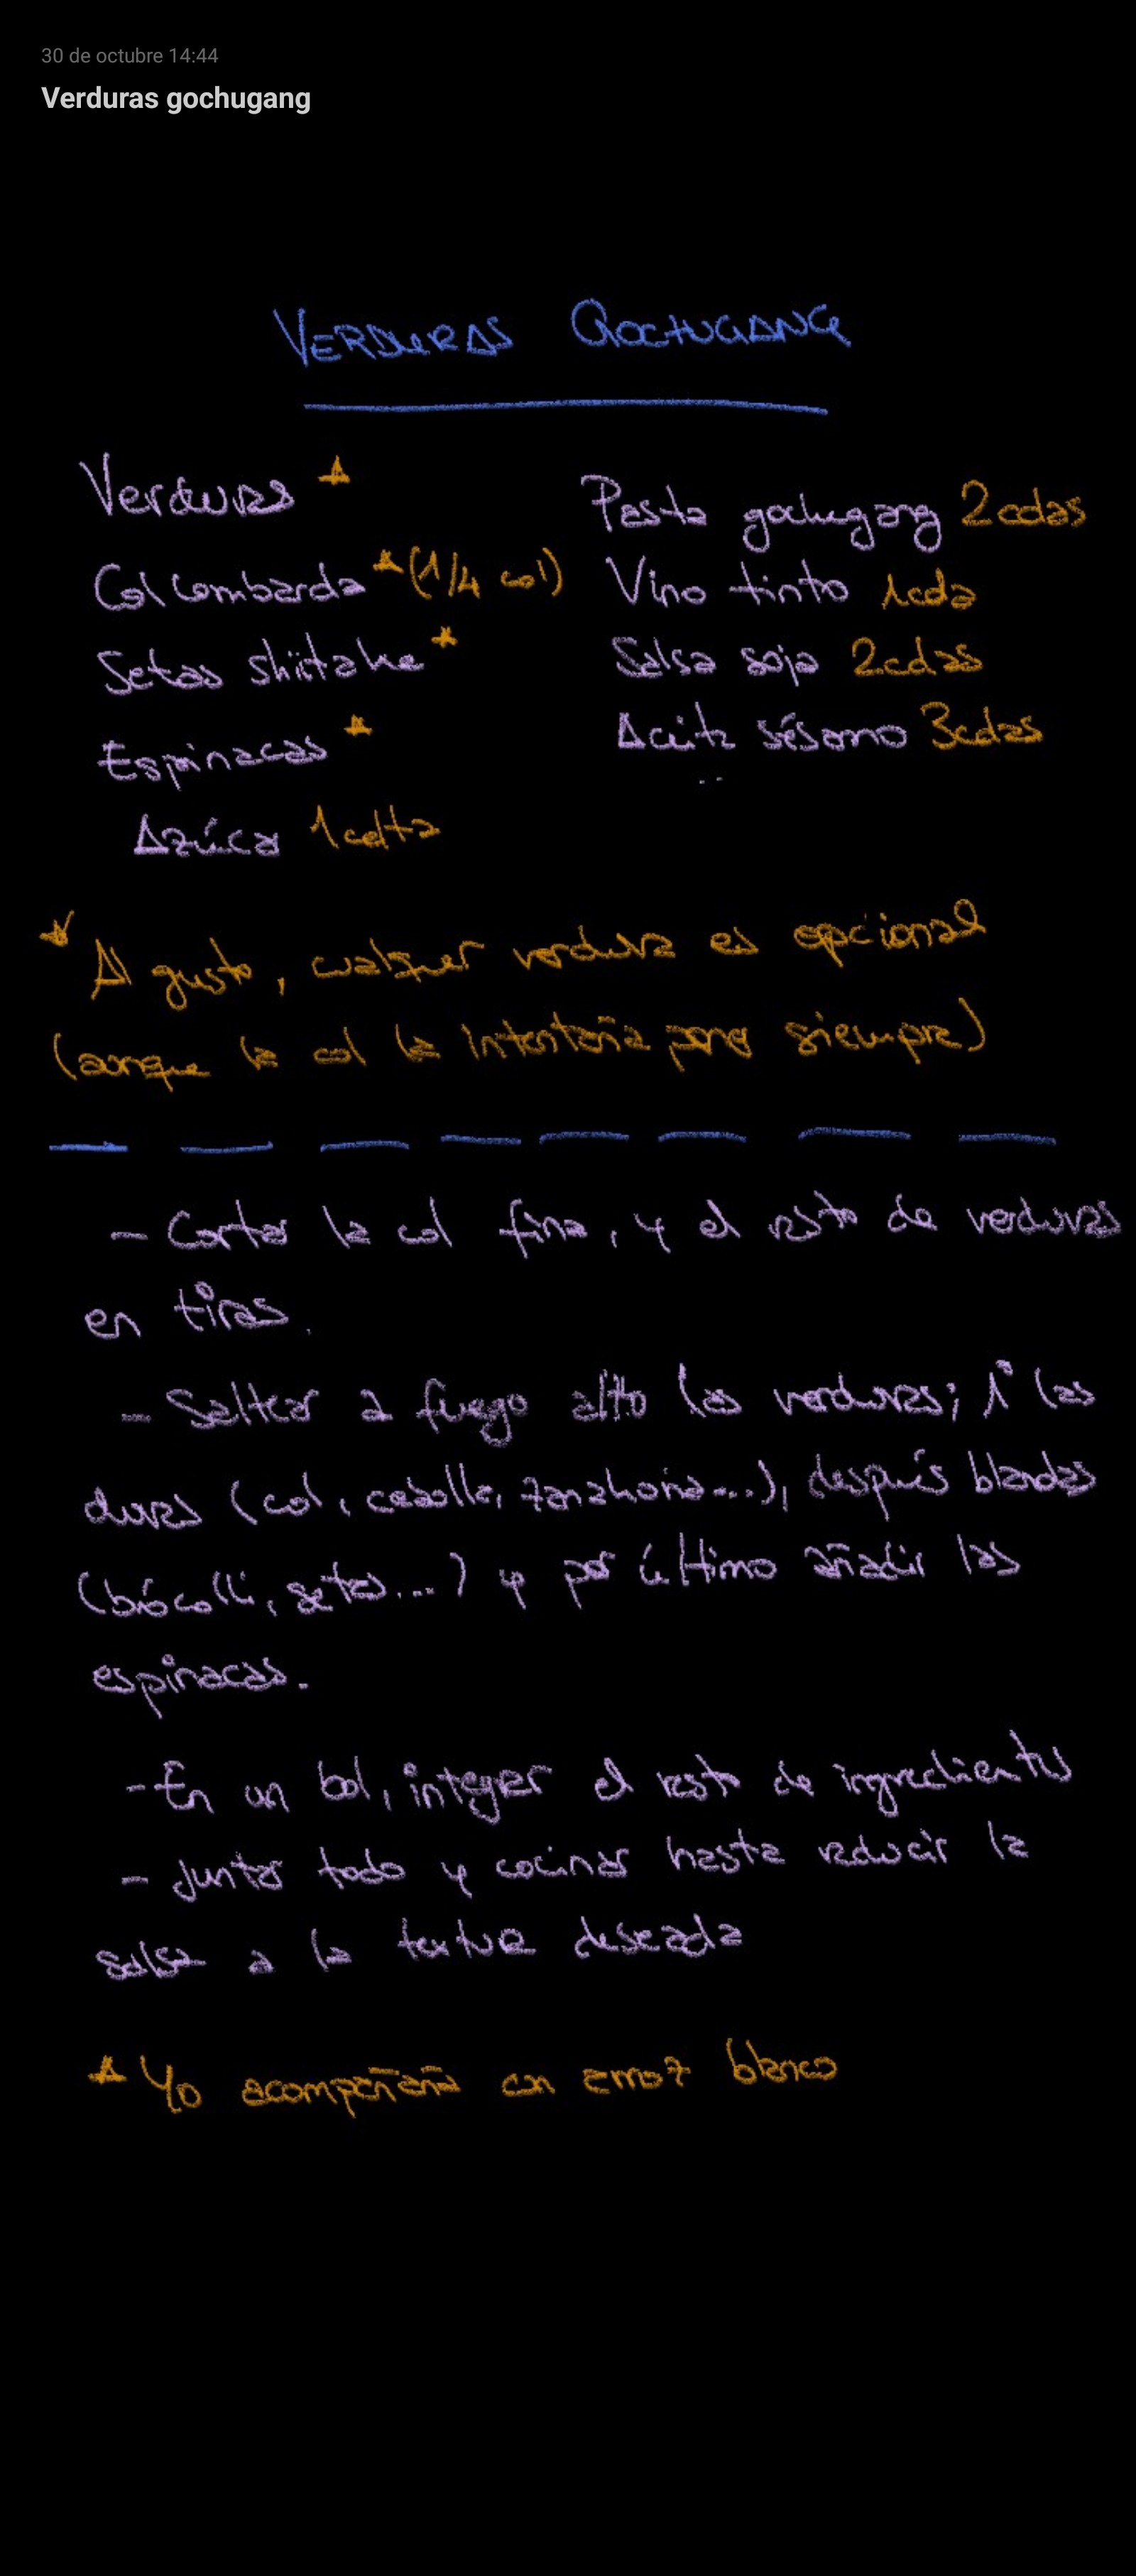 30 de octubre 14:44
Verduras gochugang
VERDURAS GOCHUGANG
Verduras *
Col Lombarda * (1/4 col)
Setas shiitake *
Espinacas *
Azúcar 1cdta
Pasta gochugang 2cdas
Vino tinto 1cda
Salsa soja 2cdas
Aceite sésamo 3cdas
* Al gusto, cualquier verdura es opcional
(aunque la col la intentaría poner siempre)
- Cortar la col fina, y el resto de verduras
en tiras.
- Saltear a fuego alto las verduras; 1º las
duras (col, cebolla, zanahoria...), después blandas
(brócolli, setas...) y por último añadir las
espinacas.
- En un bol, integrar el resto de ingredientes
- Juntar todo y cocinar hasta reducir la
salsa a la textura deseada
* Yo acompañaría con arroz blanco